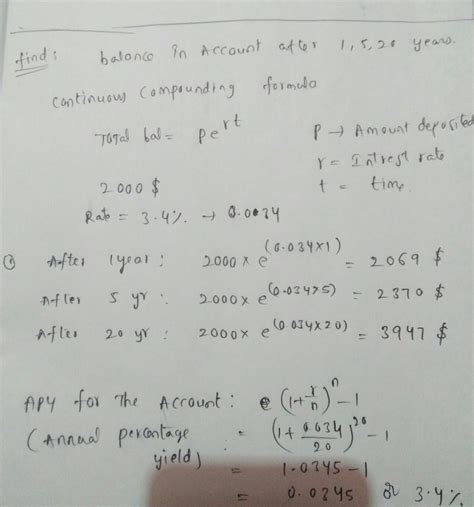 find: balance in Account after 1, 5, 20 years.
Continuous Compounding formula
Total bal = pe^rt
P → Amount deposited
r = Intrest rate
t = time.
2000 $
Rate = 3.4% → 0.0034
① After 1 year: 2000 × e^(0.034×1) = 2069 $
After 5 yr: 2000 × e^(0.034×5) = 2370 $
After 20 yr: 2000 × e^(0.034×20) = 3947 $
APY for The Account: (1+r/n)^n - 1
(Annual percentage yield) = (1 + 0.034/20)^20 - 1
= 1.0345 - 1
= 0.0345 or 3.4%